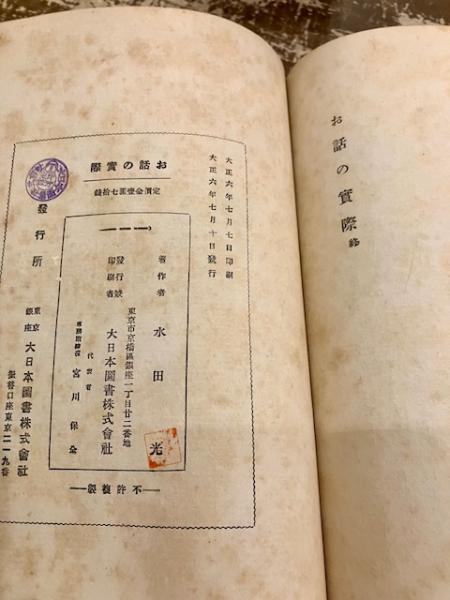 お話の實際 終
大正六年七月七日印刷
大正六年七月十日發行
お話の實際
定價金壹圓七拾錢
著作者 水田光
東京市京橋區銀座一丁目廿二番地
發行兼印刷者 大日本圖書株式會社
代表者
專務取締役 宮川保全
不許複製
發行所
東京銀座 大日本圖書株式會社
振替口座東京二一九番